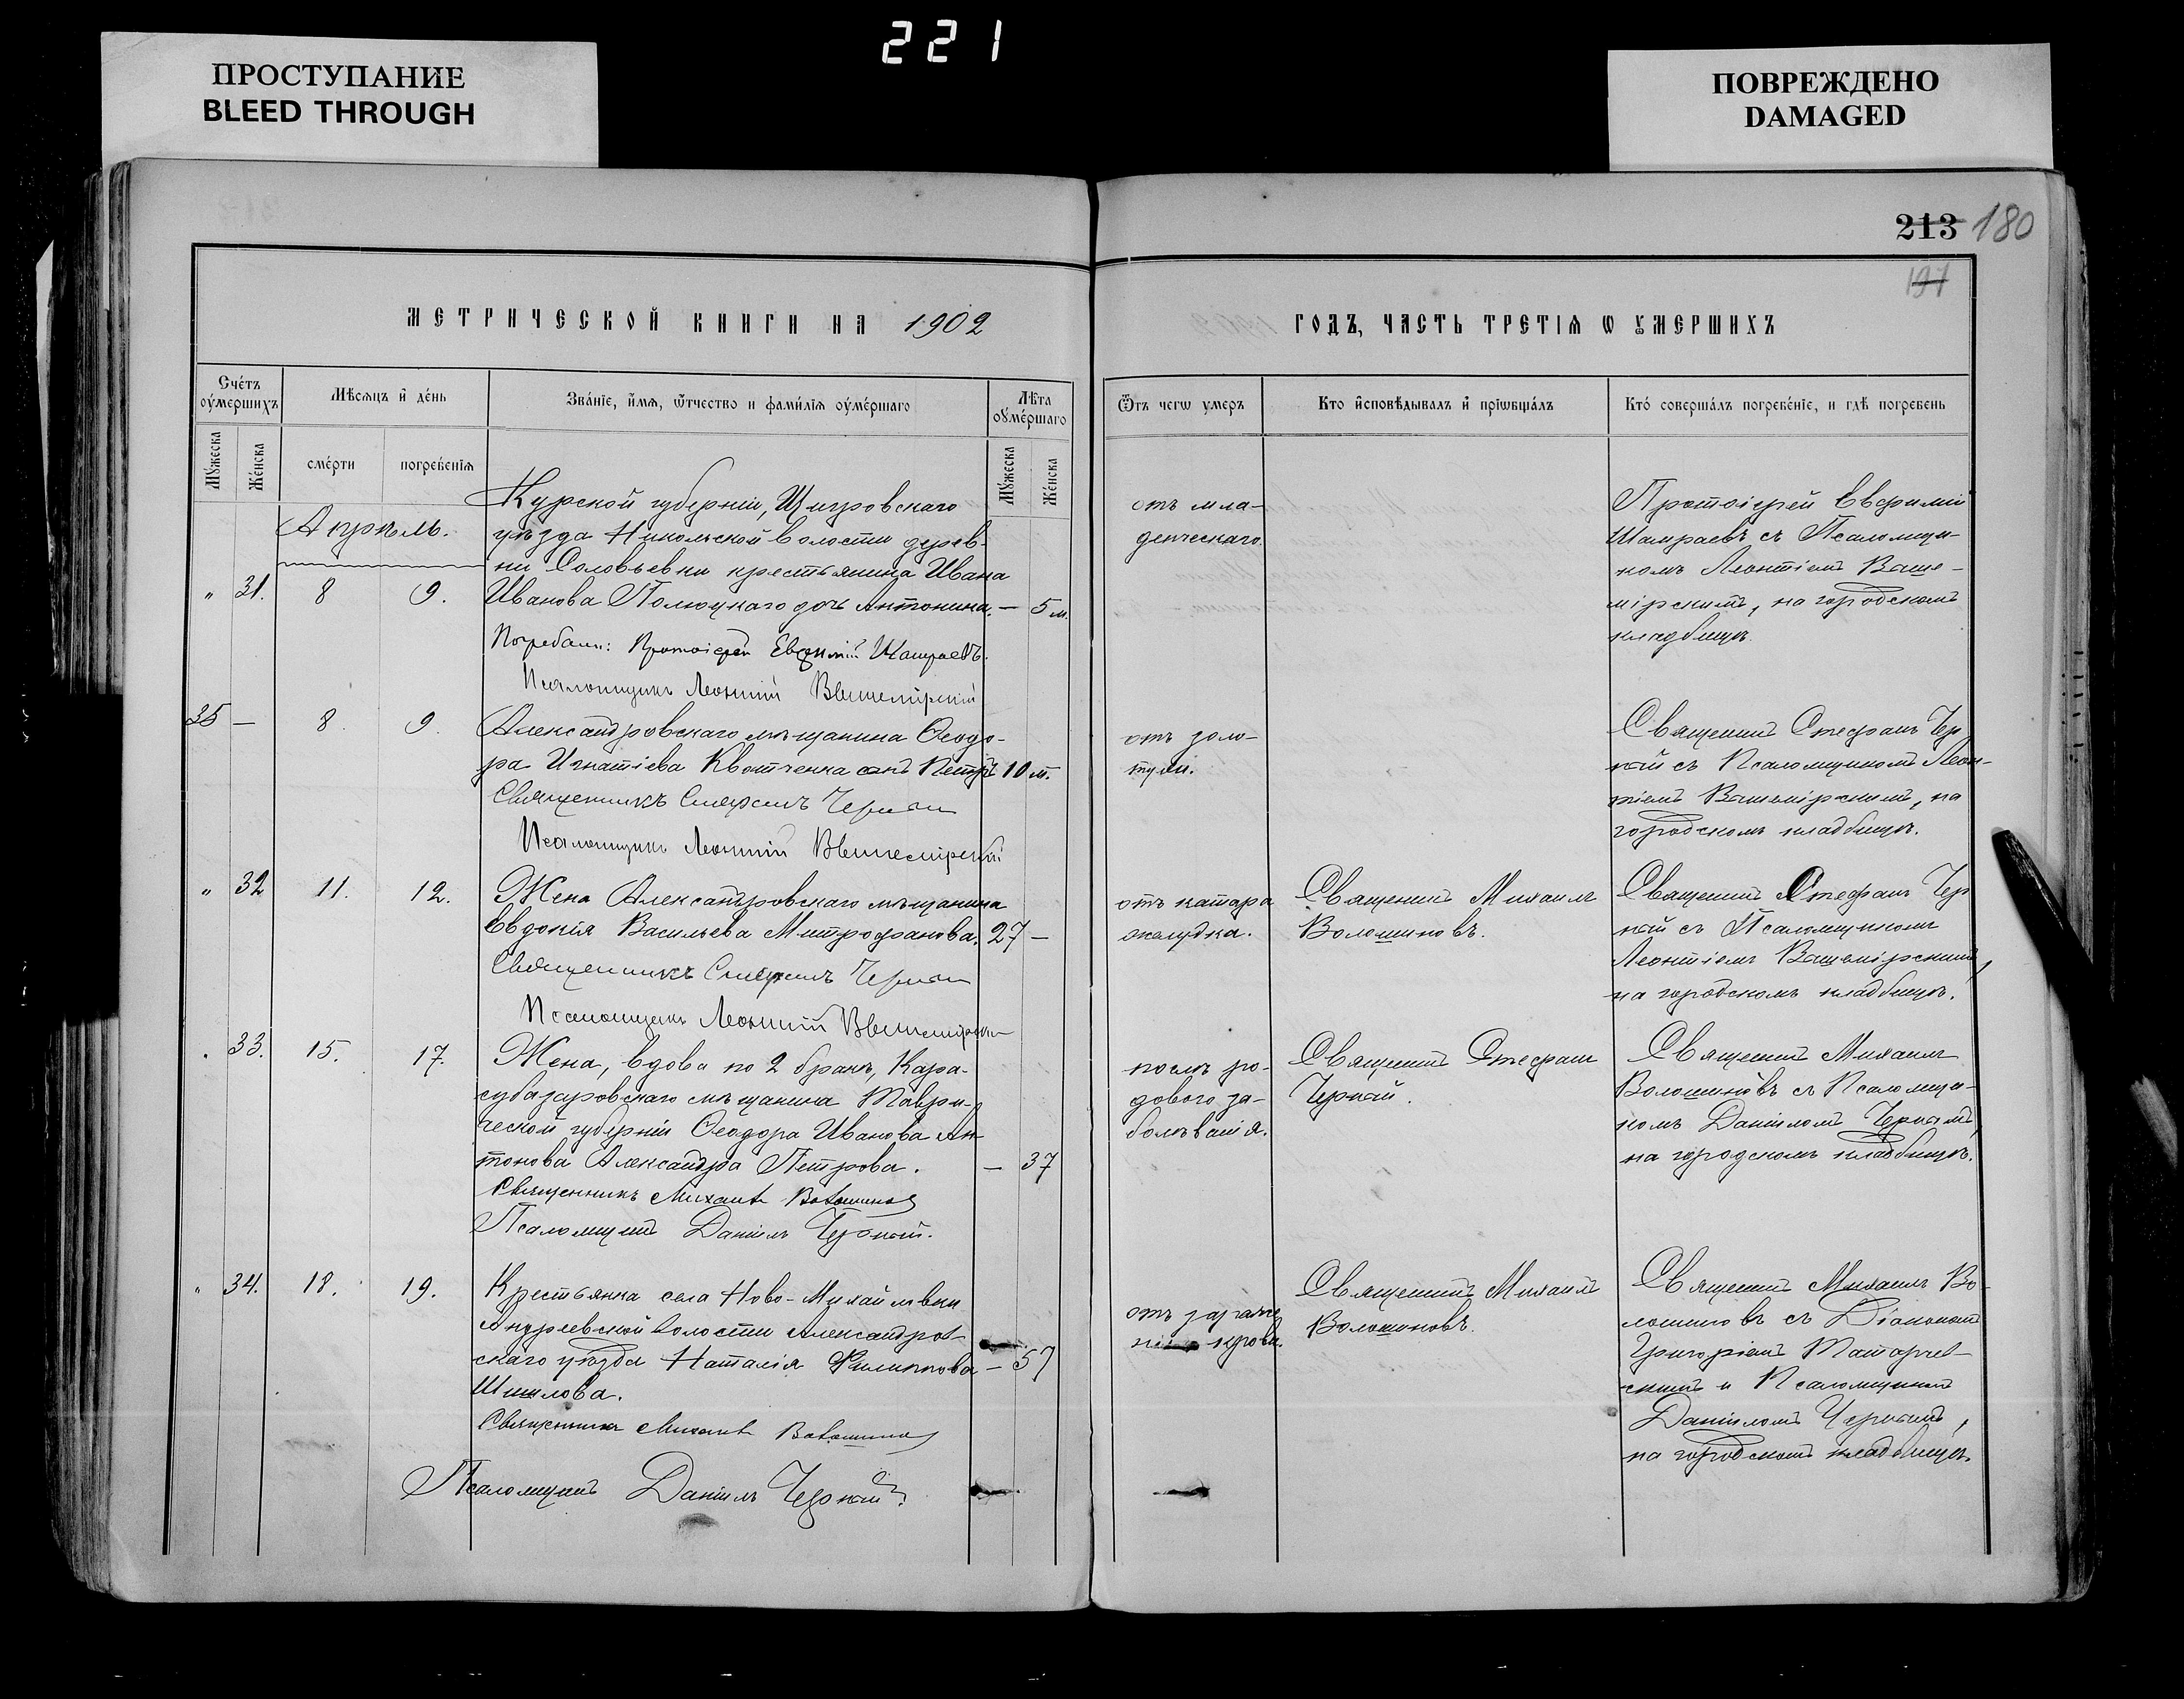 221
ПРОСТУПАНИЕ
BLEED THROUGH
ПОВРЕЖДЕНО
DAMAGED
213 180
197
МЕТРИЧЕСКОЙ КНИГИ НА 1902
ГОДЪ, ЧАСТЬ ТРЕТІѦ Ѡ ОУМЕРШИХЪ
Сче́тъ оу́мершихъ
Мѣ́сѧцъ и҆ де́нь
Зва́ніе, и҆́мѧ, ѿтчество и фами́ліѧ оу҆ме́ршаго
Лѣта оу҆ме́ршаго
Ѿтъ чегѡ умеръ
Кто и҆сповѣ́дывалъ и҆ прїѡбща́лъ
Кто́ соверша́лъ погребе́ніе, и гдѣ погребенъ
Му́жеска
Же́нска
сме́рти
погребе́ніѧ
Му́жеска
Же́нска
Апрѣль.
Курской губерніи, Щигровскаго
уѣзда Никольской волости дерев-
ни Соловьевки крестьянина Ивана
" 31. 8 9. Иванова Полюцкаго дочь Антонина. — 5 м.
Погребали: Протоіерей Евѳимій Шамраевъ.
Псаломщикъ Леонтій
отъ мла-
денческаго.
Протоіерей Евфимій
Шамраевъ съ Псаломщи-
комъ Леонтіемъ Выше-
мірскимъ, на городскомъ
кладбищѣ.
35 — 8. 9. Александровскаго мѣщанина Ѳеодо-
ра Игнатіева Квотченка сынъ Петръ 10 м.
Священникъ Стефанъ Черный
Псаломщикъ Леонтій
отъ золо-
тухи.
Священникъ Стефанъ Чер-
ный съ Псаломщикомъ Леон-
тіемъ Вышемірскимъ, на
городскомъ кладбищѣ.
" 32 11. 12. Жена Александровскаго мѣщанина
Евдокія Васильева Митрофанова. 27 —
Священникъ Стефанъ Черный
Псаломщикъ Леонтій
отъ катара
желудка.
Священникъ Михаилъ
Волошиновъ.
Священникъ Стефанъ Чер
ный съ Псаломщикомъ
Леонтіемъ Вышемірскимъ,
на городскомъ кладбищѣ.
. 33. 15. 17. Жена, вдова по 2 бракѣ, Кара-
субазаровскаго мѣщанина Таври-
ческой губерніи Ѳеодора Иванова Ан
тонова Александра Петрова. — 37
Священникъ Михаилъ Волошиновъ
Псаломщикъ Даніилъ Черный.
послѣ ро-
дового за-
болѣванія.
Священникъ Стефанъ
Черный.
Священникъ Михаилъ
Волошиновъ съ Псаломщи-
комъ Даніиломъ Чернымъ,
на городскомъ кладбищѣ.
" 34. 18. 19. Крестьянка села Ново-Михайловки
Андреевской волости Александров-
скаго уѣзда Наталія Филиппова — 57
Шилова.
Священникъ Михаилъ Волошиновъ
Псаломщикъ Даніилъ Черный.
отъ зараже
нія крови.
Священникъ Михаилъ
Волошиновъ.
Священникъ Михаилъ Во-
лошиновъ съ Діакономъ
Григоріемъ
скимъ и Псаломщикомъ
Даніиломъ Чернымъ,
на городскомъ кладбищѣ.